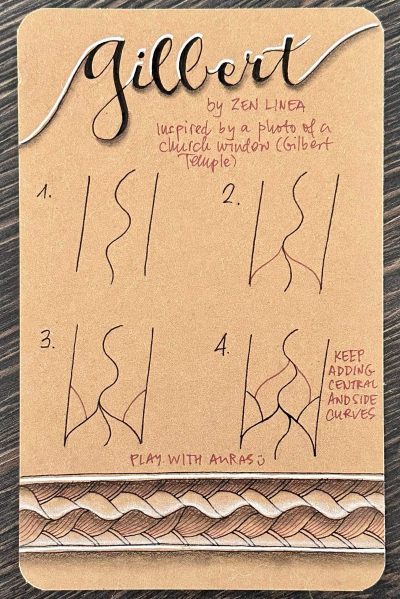 Gilbert
by ZEN LINEA
Inspired by a photo of a
church window (Gilbert
Temple)
1.
2.
3.
4.
KEEP
ADDING
CENTRAL
AND SIDE
CURVES
PLAY WITH AURAS☺